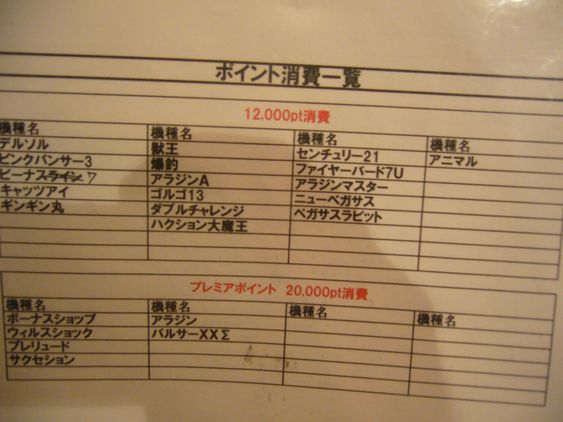 ポイント消費一覧
12,000pt消費
機種名 機種名 機種名 機種名
デルソル 獣王 センチュリー21 アニマル
ピンクパンサー3 爆釣 ファイヤーバード7U
ビーナスライン 7 アラジンA アラジンマスター
キャッツアイ ゴルゴ13 ニューペガサス
ギンギン丸 ダブルチャレンジ ペガサスラビット
ハクション大魔王
プレミアポイント 20,000pt消費
機種名 機種名 機種名 機種名
ボーナスショップ アラジン
ウィルスショック バルサーXXΣ
プレリュード
サクセション